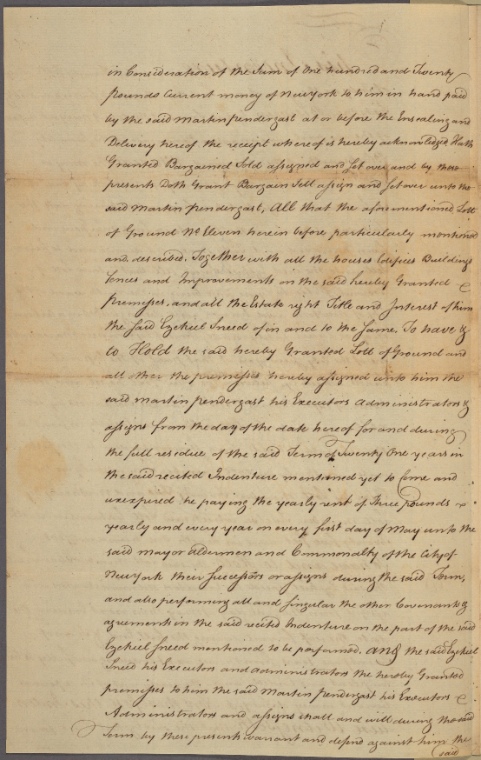 in Consideration of the Sum of One hundred and Twenty
pounds Current money of New york to him in hand paid
by the said Martin Pendergast at or before the Ensealing and
Delivery hereof the receipt whereof is hereby acknowledged Hath
Granted Bargained Sold assigned and set over and by these
presents Doth Grant Bargain Sell assign and set over unto the
said Martin Pendergast, All that the aforementioned Lott
of Ground No Eleven herein before particularly mentioned
and described, Together with all the houses Edifices Buildings
fences and Improvements on the said hereby Granted
premisses, and all the Estate right Title and Interest of him
the said Ezekiel Sneed of in and to the same. To have &
to Hold the said hereby Granted Lott of Ground and
all other the premisses hereby assigned unto him the
said Martin Pendergast his Executors Administrators &
assigns from the day of the date hereof for and during
the full residue of the said Term of Twenty One years in
the said recited Indenture mentioned yet to Come and
unexpired he paying the yearly rent of Three pounds
yearly and every year on every first day of May unto the
said mayor Aldermen and Commonalty of the City of
New york their Successors or assigns during the said Term,
and also performing all and singular the other Covenants &
agreements in the said recited Indenture on the part of the said
Ezekiel Sneed mentioned to be performed. And the said Ezekiel
Sneed his Executors and administrators the hereby Granted
premisses to him the said Martin Pendergast his Executors
Administrators and assigns shall and will during the said
Term by these presents warrant and defend against him the
said